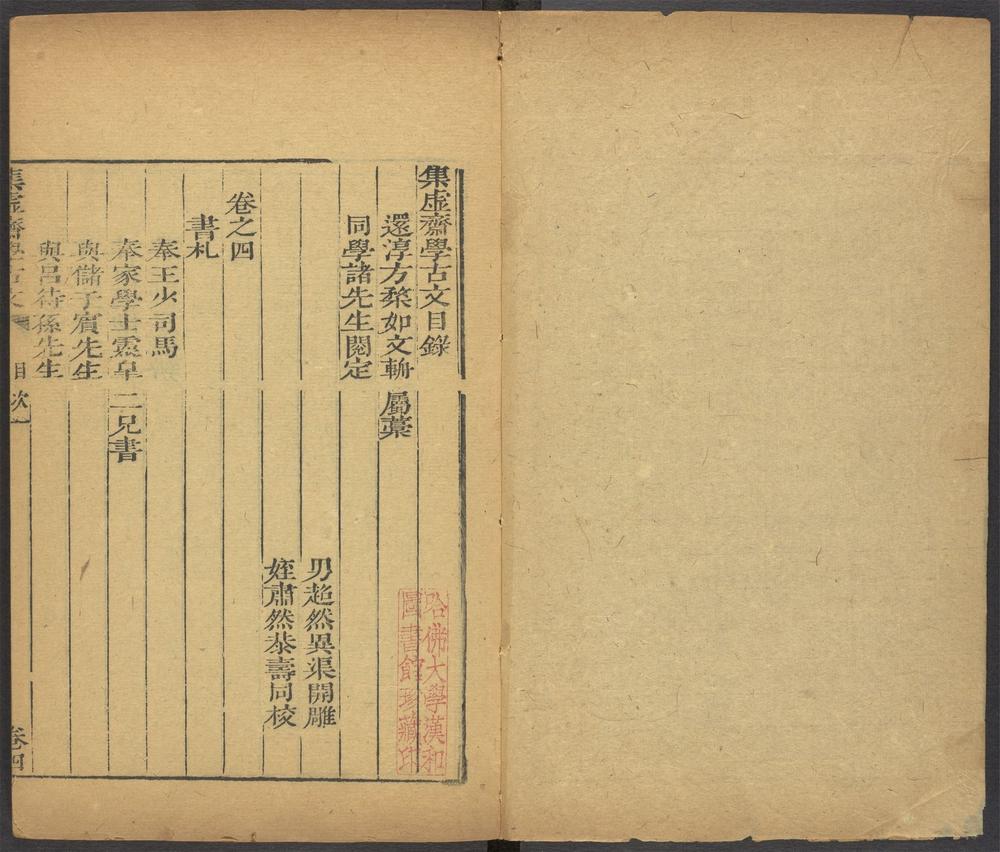 集虛齋學古文目錄
還淳方楘如文輈 屬藁
同學諸先生閱定
男超然異渠開雕
姪肅然恭壽同校
卷之四
書札
奉王少司馬
奉家學士霞皐二兄書
與儲子賓先生
與呂待孫先生
集虛齋學古文 目次 卷四
哈佛大學漢和
圖書館珍藏印